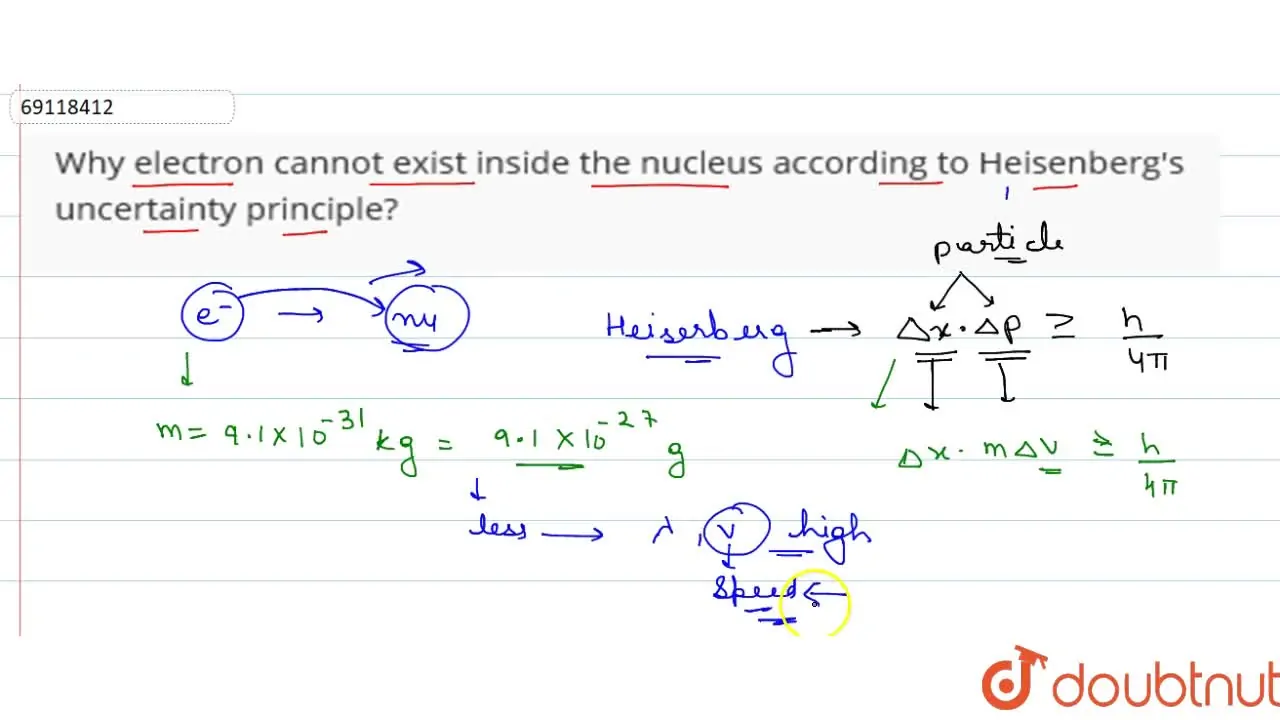 69118412
Why electron cannot exist inside the nucleus according to Heisenberg's
uncertainty principle?
particle
e⁻ → nu
Heiserberg → Δx · Δp ≥ h/4π
m = 9.1 × 10⁻³¹ kg = 9.1 × 10⁻²⁷ g
Δx · mΔv ≥ h/4π
less → λ, v high
Speed ←
doubtnut